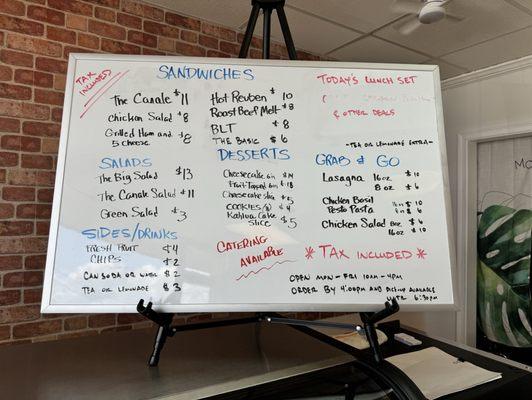 TAX INCLUDED
SANDWICHES
The Canale $11
Chicken Salad $8
Grilled Ham and
5 cheese $8
Hot Reuben $10
Roast Beef Melt $8
BLT $8
THE BASIC $6
SALADS
The Big Salad $13
The Canale Salad $11
Green Salad $3
SIDES/DRINKS
FRESH FRUIT $4
CHIPS $2
CAN SODA OR WATER $2
TEA OR LEMONADE $3
DESSERTS
Cheesecake 6in $14
Fruit-Topped 6in $18
Cheesecake slice $5
COOKIES $4
Kahlua Cake
Slice $5
CATERING
AVAILABLE
TODAY'S LUNCH SET
& OTHER DEALS
-TEA OR LEMONADE EXTRA-
GRAB & GO
Lasagna 16oz $10
8oz $6
Chicken Basil
Pesto Pasta
Chicken Salad 8oz $6
16oz $10
* TAX INCLUDED *
OPEN MON-FRI 10AM-4PM
ORDER BY 4:00PM AND PICKUP AVAILABLE
UNTIL 6:30PM
MO